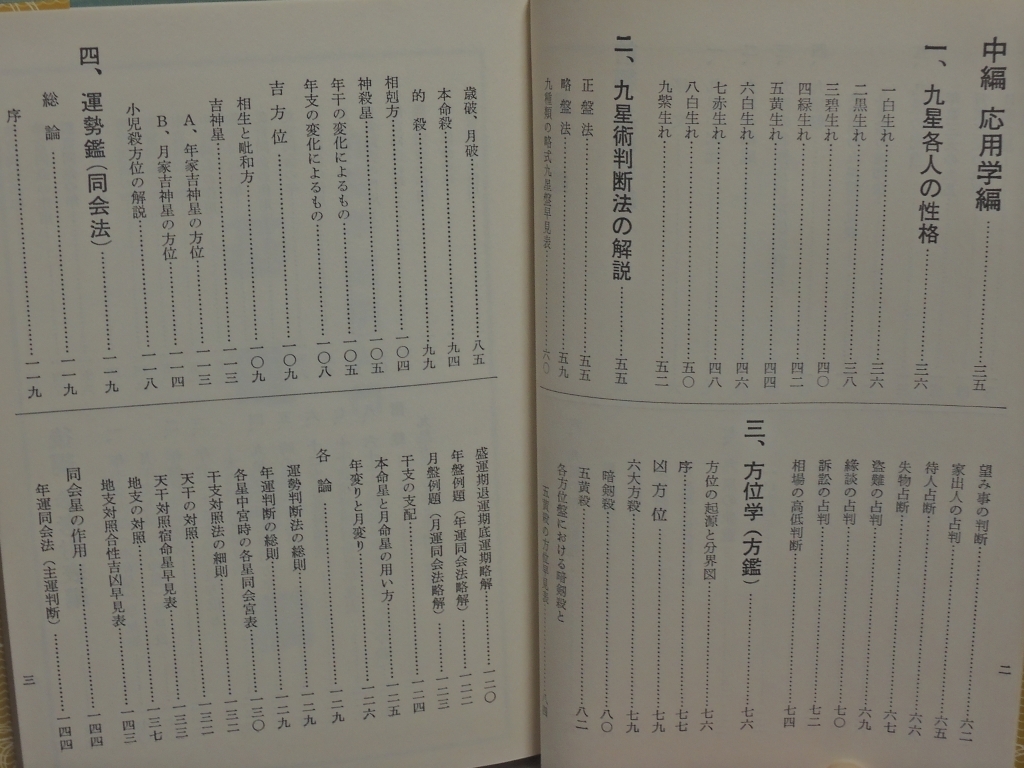 中編 応用学編……三五
一、九星各人の性格……三六
一白生れ……三六
二黒生れ……三八
三碧生れ……四〇
四緑生れ……四二
五黄生れ……四四
六白生れ……四六
七赤生れ……四八
八白生れ……五〇
九紫生れ……五二
二、九星術判断法の解説……五五
正盤法……五五
略盤法……五九
九種類の略式九星盤早見表……六〇
望み事の判断……六二
家出人の占判……六二
待人占断……六五
失物占断……六六
盗難の占判……六七
縁談の占判……六九
訴訟の占判……七〇
相場の高低判断……七二
三、方位学(方鑑)……七六
方位の起源と分界図……七六
序……七七
凶方位……七九
六大方殺……七九
暗剣殺……八〇
五黄殺……八二
各方位盤における暗剣殺と
五黄殺の方位早見表……八四
二
歳破、月破……八五
本命殺……九四
的殺……九九
相剋方……一〇四
神殺星……一〇五
年干の変化によるもの……一〇五
年支の変化によるもの……一〇八
吉方位……一〇九
相生と毗和方……一〇九
吉神星……一一三
A、年家吉神星の方位……一一三
B、月家吉神星の方位……一一四
小児殺方位の解説……一一八
四、運勢鑑(同会法)……一一九
総論……一一九
序……一一九
盛運期退運期底運期略解……一二〇
年盤例題(年運同会法略解)……一二二
月盤例題(月運同会法略解)……一二三
干支の支配……一二四
本命星と月命星の用い方……一二五
年変りと月変り……一二六
各論……一二九
運勢判断法の総則……一二九
年運判断の総則……一二九
各星中宮時の各星同会宮表……一三〇
干支対照法の細則……一三二
天干の対照……一三二
天干対照宿命星早見表……一三三
地支の対照……一三七
地支対照合性吉凶早見表……一四三
同会星の作用……一四四
年運同会法(主運判断)……一四四
三